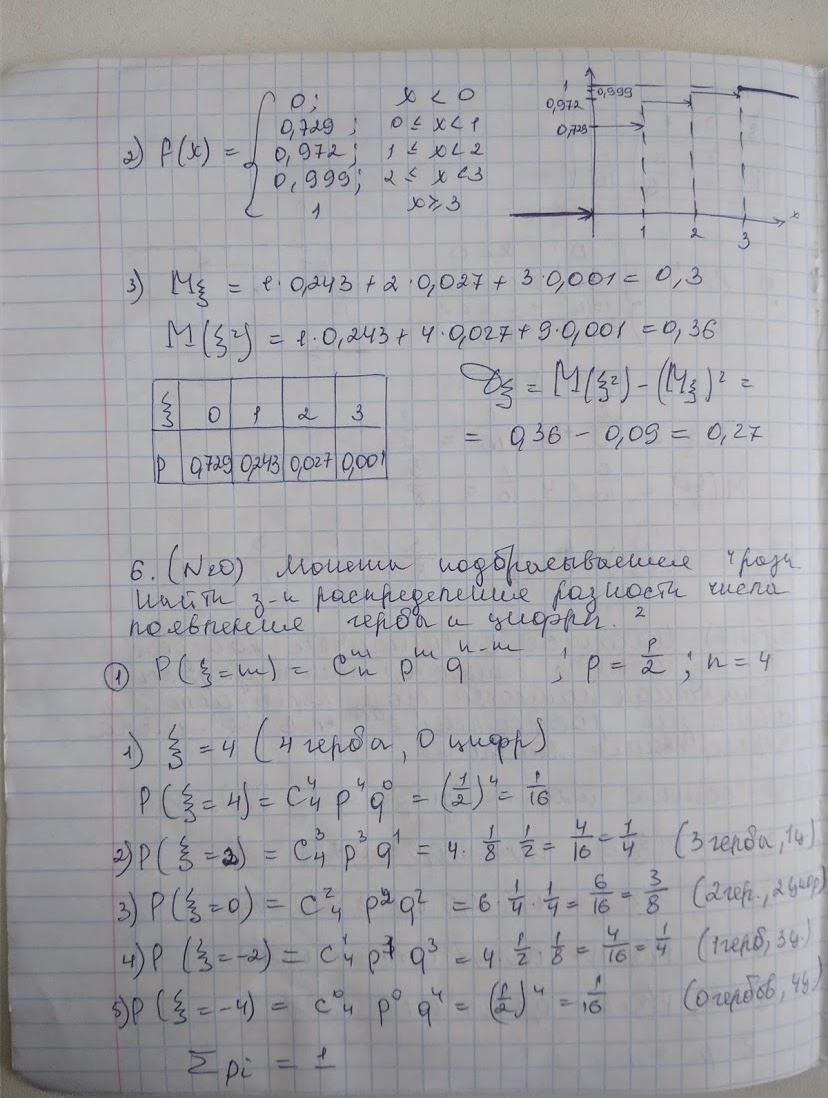 2) f(x) =
0; x < 0
0,729; 0 ≤ x < 1
0,972; 1 ≤ x < 2
0,999; 2 ≤ x < 3
1 x ≥ 3
1 0,999
0,972
0,729
1 2 3 x
3) Mξ = 1·0,243 + 2·0,027 + 3·0,001 = 0,3
M(ξ²) = 1·0,243 + 4·0,027 + 9·0,001 = 0,36
ξ 0 1 2 3
P 0,729 0,243 0,027 0,001
Dξ = M(ξ²) - (Mξ)² =
= 0,36 - 0,09 = 0,27
6. (№20) Монета подбрасывается 4 раза
Найти з-н распределения разности числа
появления герба и цифры. 2
① P(ξ=m) = Cₙᵐ pᵐ qⁿ⁻ᵐ ; p = 1/2 ; n = 4
1) ξ = 4 (4 герба, 0 цифр)
P(ξ=4) = C₄⁴ p⁴ q⁰ = (1/2)⁴ = 1/16
2) P(ξ=2) = C₄³ p³ q¹ = 4 · 1/8 · 1/2 = 4/16 = 1/4 (3 герба, 1ц)
3) P(ξ=0) = C₄² p² q² = 6 · 1/4 · 1/4 = 6/16 = 3/8 (2 гер., 2 цифр)
4) P(ξ=-2) = C₄¹ p¹ q³ = 4 · 1/2 · 1/8 = 4/16 = 1/4 (1 герб, 3ц)
5) P(ξ=-4) = C₄⁰ p⁰ q⁴ = (1/2)⁴ = 1/16 (0 гербов, 4ц)
Σpi = 1